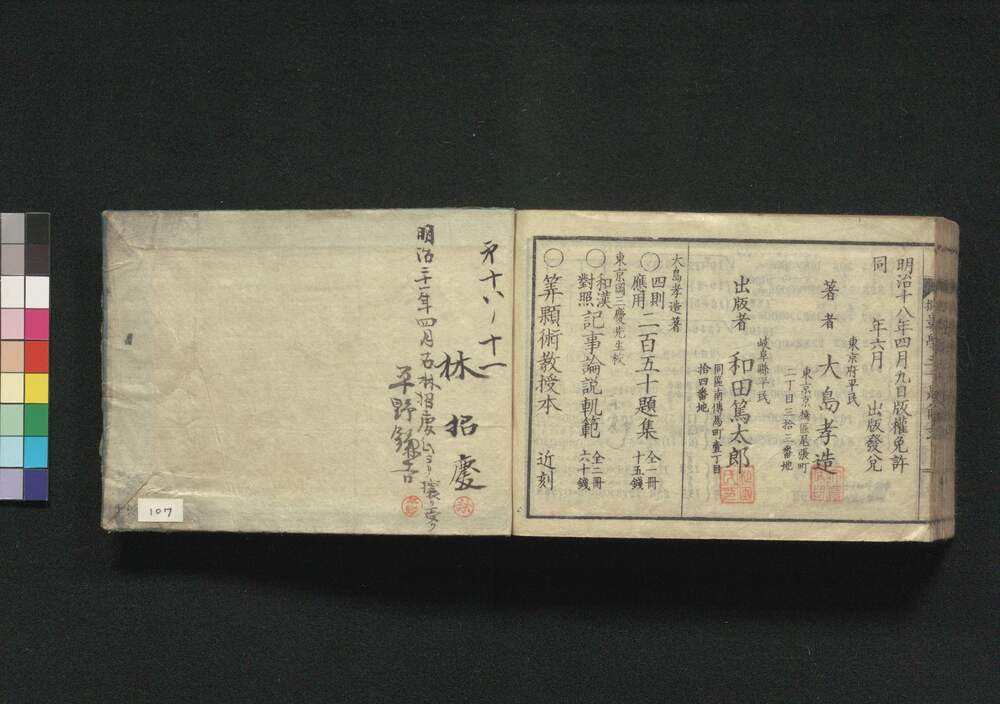 明治十八年四月九日版權免許
同 年六月 出版發兌
東京府平民
著者 大島孝造
東京京橋區尾張町
二丁目三拾三番地
岐阜縣平民
出版者 和田篤太郎
同區南傳馬町壹丁目
拾四番地
大島孝造著
〇四則應用二百五十題集 全一冊 十五錢
東京國三慶先生校
〇和漢對照記事論説軌範 全二冊 六十錢
〇筭顆術教授本 近刻
才十八ノ十一
林招慶
明治三十一年四月右林招慶氏ヨリ
平野
107